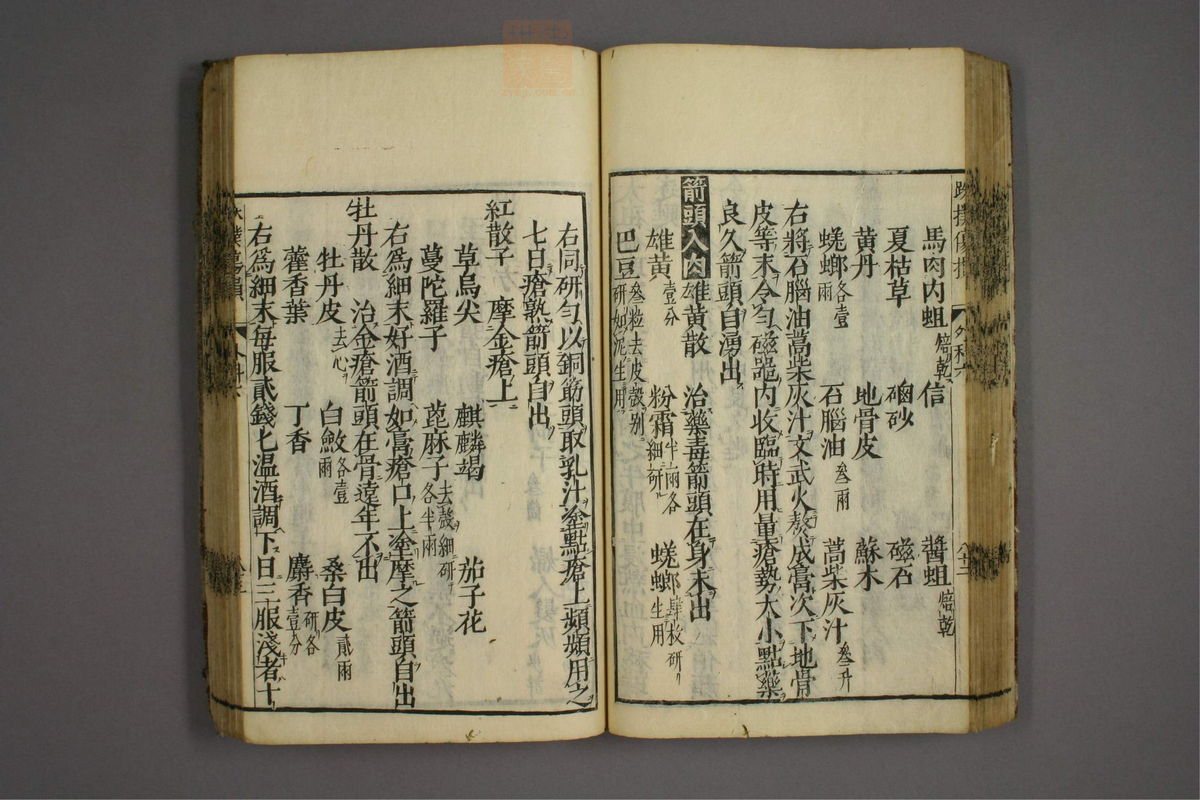 馬肉内蛆焙乾　信　醬蛆焙乾
夏枯草　硇砂　磁石
黄丹　地骨皮　蘇木
蜣蜋各壹兩　石腦油叁兩　蒿柴灰汁叁升
右將石腦油蒿柴灰汁文武火熬成膏次下地骨
皮等末令匀磁器内收臨時用量瘡勢大小點藥
良久箭頭自湧出
箭頭入肉雄黄散　治藥毒箭頭在身未出
雄黄壹分　粉霜半兩各細研　蜣蜋肆枚研生用
巴豆叁粒去皮殼别研如泥生用
右同研匀以銅筋頭取乳汁塗點瘡上頻頻用之
七日瘡熟箭頭自出
紅散子　摩金瘡上
草烏尖　麒麟竭　茄子花
蔓陀羅子　蓖麻子去殼細研各半兩
右為細末好酒調如膏瘡口上塗摩之箭頭自出
牡丹散　治金瘡箭頭在骨遠年不出
牡丹皮去心　白歛各壹兩　桑白皮貳兩
藿香葉　丁香　麝香研各壹分
右為細末每服貳錢匕温酒調下日三服淺者十